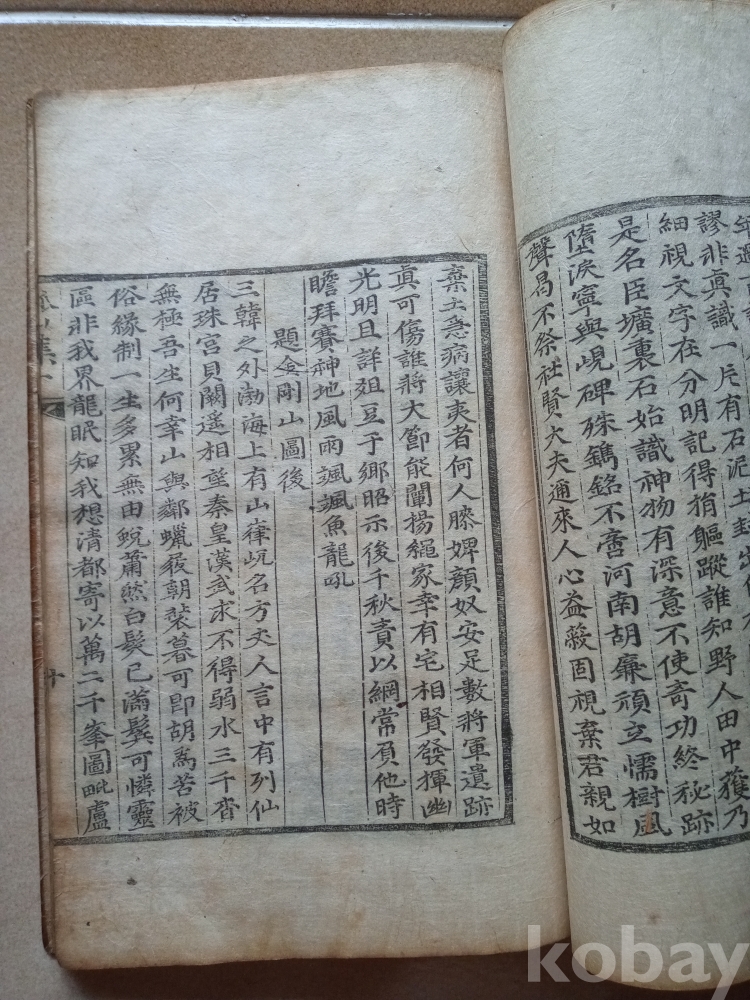 謬非眞識一片有石泥土封
細視文字在分明記得捐軀蹤誰知野人田中獲乃
是名臣壙裏石始識神物有深意不使奇功終祕跡
墮淚寧與峴碑殊鐫銘不啻河南胡廉頑立懦樹風
聲曷不祭社賢大夫邇來人心益蔽固視棄君親如
棄土急病讓夷者何人膝婢顔奴安足數將軍遺跡
眞可傷誰將大節能闡揚繩家幸有宅相賢發揮幽
光明且詳爼豆于鄕昭示後千秋責以綱常負他時
瞻拜賽神地風雨颯颯魚龍吼
題金剛山圖後
三韓之外渤海上有山嵂屼名方丈人言中有列仙
居珠宮貝闕遥相望秦皇漢武求不得弱水三千杳
無極吾生何幸山與鄰蠟屐朝裝暮可卽胡爲苦被
俗緣制一生多累無由蛻蕭然白髮已滿鬢可憐靈
區非我界龍眠知我想清都寄以萬二千峯圖毗盧
集一
十
kobay